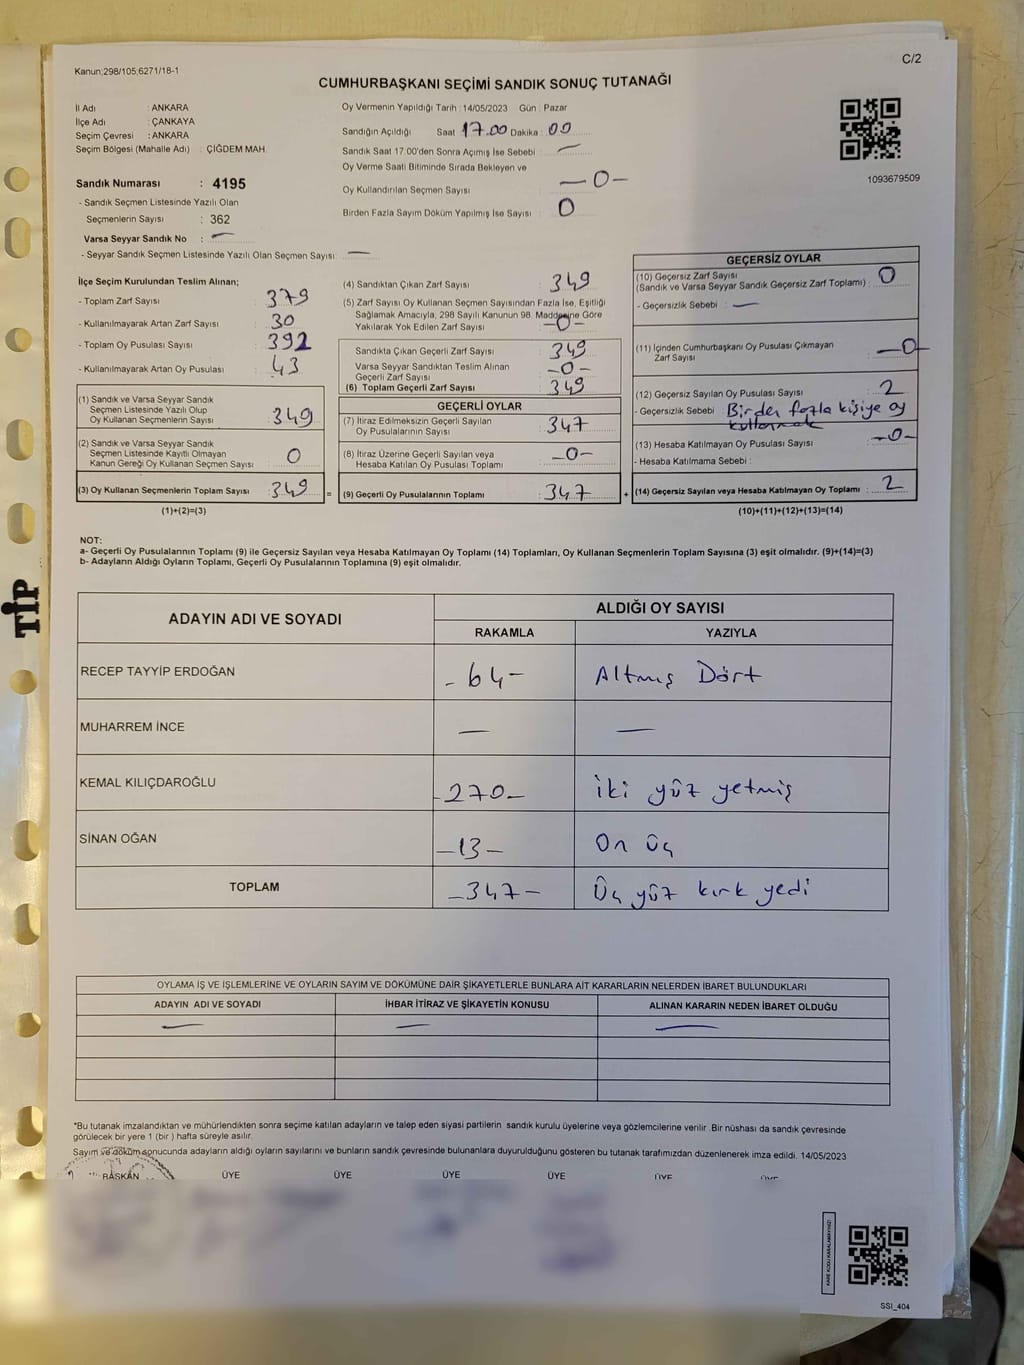 Kanun;298/105;6271/18-1
C/2
CUMHURBAŞKANI SEÇİMİ SANDIK SONUÇ TUTANAĞI
İl Adı : ANKARA
İlçe Adı : ÇANKAYA
Seçim Çevresi : ANKARA
Seçim Bölgesi (Mahalle Adı) : ÇİĞDEM MAH.
Sandık Numarası : 4195
- Sandık Seçmen Listesinde Yazılı Olan
Seçmenlerin Sayısı : 362
Varsa Seyyar Sandık No : —
- Seyyar Sandık Seçmen Listesinde Yazılı Olan Seçmen Sayısı: —
Oy Vermenin Yapıldığı Tarih : 14/05/2023 Gün : Pazar
Sandığın Açıldığı Saat 17.00 Dakika : 00
Sandık Saat 17.00'den Sonra Açımış İse Sebebi : —
Oy Verme Saati Bitiminde Sırada Bekleyen ve
Oy Kullandırılan Seçmen Sayısı : —0—
Birden Fazla Sayım Döküm Yapılmış İse Sayısı : 0
1093679509
İlçe Seçim Kurulundan Teslim Alınan;
- Toplam Zarf Sayısı : 379
- Kullanılmayarak Artan Zarf Sayısı : 30
- Toplam Oy Pusulası Sayısı : 392
- Kullanılmayarak Artan Oy Pusulası : 43
(1) Sandık ve Varsa Seyyar Sandık
Seçmen Listesinde Yazılı Olup
Oy Kullanan Seçmenlerin Sayısı : 349
(2) Sandık ve Varsa Seyyar Sandık
Seçmen Listesinde Kayıtlı Olmayan
Kanun Gereği Oy Kullanan Seçmen Sayısı : 0
(3) Oy Kullanan Seçmenlerin Toplam Sayısı : 349
(1)+(2)=(3)
(4) Sandıktan Çıkan Zarf Sayısı : 349
(5) Zarf Sayısı Oy Kullanan Seçmen Sayısından Fazla İse, Eşitliği
Sağlamak Amacıyla, 298 Sayılı Kanunun 98. Maddesine Göre
Yakılarak Yok Edilen Zarf Sayısı : —0—
Sandıkta Çıkan Geçerli Zarf Sayısı : 349
Varsa Seyyar Sandıktan Teslim Alınan
Geçerli Zarf Sayısı : —0—
(6) Toplam Geçerli Zarf Sayısı : 349
GEÇERLİ OYLAR
(7) İtiraz Edilmeksizin Geçerli Sayılan
Oy Pusulalarının Sayısı : 347
(8) İtiraz Üzerine Geçerli Sayılan veya
Hesaba Katılan Oy Pusulası Toplamı : —0—
= (9) Geçerli Oy Pusulalarının Toplamı : 347 +
GEÇERSİZ OYLAR
(10) Geçersiz Zarf Sayısı
(Sandık ve Varsa Seyyar Sandık Geçersiz Zarf Toplamı) : 0
- Geçersizlik Sebebi : —
(11) İçinden Cumhurbaşkanı Oy Pusulası Çıkmayan
Zarf Sayısı : —0—
(12) Geçersiz Sayılan Oy Pusulası Sayısı : 2
- Geçersizlik Sebebi : Birden fazla kişiye oy
kullanmak
(13) Hesaba Katılmayan Oy Pusulası Sayısı : —0—
- Hesaba Katılmama Sebebi :
(14) Geçersiz Sayılan veya Hesaba Katılmayan Oy Toplamı : 2
(10)+(11)+(12)+(13)=(14)
NOT:
a- Geçerli Oy Pusulalarının Toplamı (9) ile Geçersiz Sayılan veya Hesaba Katılmayan Oy Toplamı (14) Toplamları, Oy Kullanan Seçmenlerin Toplam Sayısına (3) eşit olmalıdır. (9)+(14)=(3)
b- Adayların Aldığı Oyların Toplamı, Geçerli Oy Pusulalarının Toplamına (9) eşit olmalıdır.
TİP
ADAYIN ADI VE SOYADI ALDIĞI OY SAYISI
RAKAMLA YAZIYLA
RECEP TAYYİP ERDOĞAN - 64 - Altmış Dört
MUHARREM İNCE — —
KEMAL KILIÇDAROĞLU - 270 - iki yüz yetmiş
SİNAN OĞAN - 13 - On üç
TOPLAM - 347 - Üç yüz kırk yedi
OYLAMA İŞ VE İŞLEMLERİNE VE OYLARIN SAYIM VE DÖKÜMÜNE DAİR ŞİKAYETLERLE BUNLARA AİT KARARLARIN NELERDEN İBARET BULUNDUKLARI
ADAYIN ADI VE SOYADI İHBAR İTİRAZ VE ŞİKAYETİN KONUSU ALINAN KARARIN NEDEN İBARET OLDUĞU
— — —
*Bu tutanak imzalandıktan ve mühürlendikten sonra seçime katılan adayların ve talep eden siyasi partilerin sandık kurulu üyelerine veya gözlemcilerine verilir .Bir nüshası da sandık çevresinde
görülecek bir yere 1 (bir ) hafta süreyle asılır.
Sayım ve döküm sonucunda adayların aldığı oyların sayılarını ve bunların sandık çevresinde bulunanlara duyurulduğunu gösteren bu tutanak tarafımızdan düzenlenerek imza edildi. 14/05/2023
BAŞKAN ÜYE ÜYE ÜYE ÜYE ÜYE ÜYE
KARE KODU KARALAMAYINIZ!
SSI_404